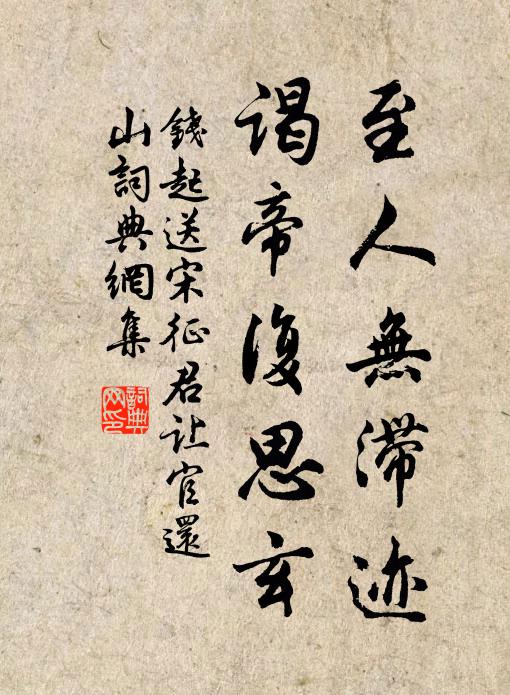 至人無滞迹
谒帝復思玄
錢起送宋征君让官還
山詞典網集
詞典
网印